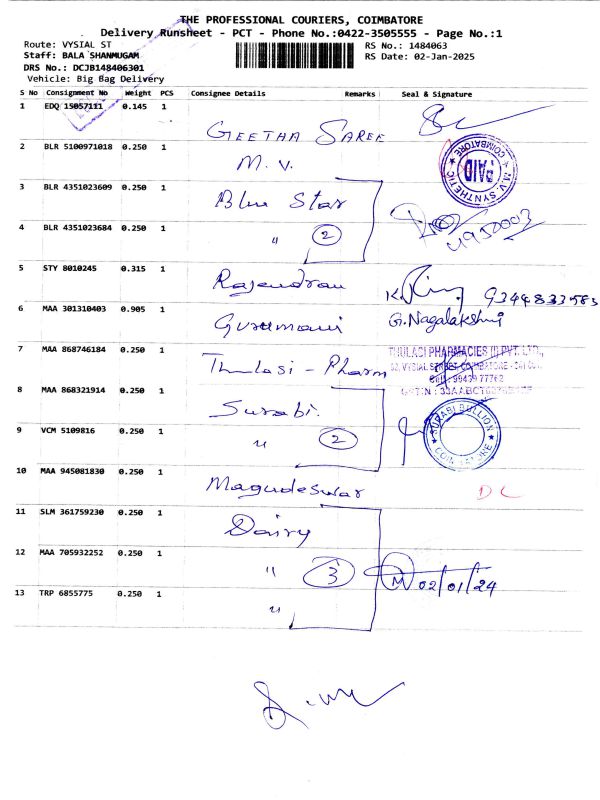 THE PROFESSIONAL COURIERS, COIMBATORE
Delivery Runsheet - PCT - Phone No.:0422-3505555 - Page No.:1
Route: VYSIAL ST
RS No.: 1484063
Staff: BALA SHANMUGAM
RS Date: 02-Jan-2025
DRS No.: DCJB148406301
Vehicle: Big Bag Delivery
S No Consignment No Weight PCS Consignee Details Remarks Seal & Signature
1 EDQ 15057111 0.145 1
GEETHA SAREE
2 BLR 5100971018 0.250 1
M.V.
M.V. SYNTHETIC COIMBATORE PAID
3 BLR 4351023609 0.250 1
Blue Star
4 BLR 4351023684 0.250 1
" 2
4950003
5 STY 8010245 0.315 1
Rajendran
9344833583
6 MAA 301310403 0.905 1
Gurumani G.Nagalakshmi
7 MAA 868746184 0.250 1
Thulasi - Pharm
THULASI PHARMACIES (I) PVT. LTD.,
32, VYSIAL STREET, COIMBATORE
Cell : 99439 77762
8 MAA 868321914 0.250 1
Surabi.
SURABI BULLION COIMBATORE
9 VCM 5109816 0.250 1
" 2
10 MAA 945081830 0.250 1
Magudeswar DL
11 SLM 361759230 0.250 1
Dairy
12 MAA 705932252 0.250 1
" 3 M 02/01/24
13 TRP 6855775 0.250 1
"